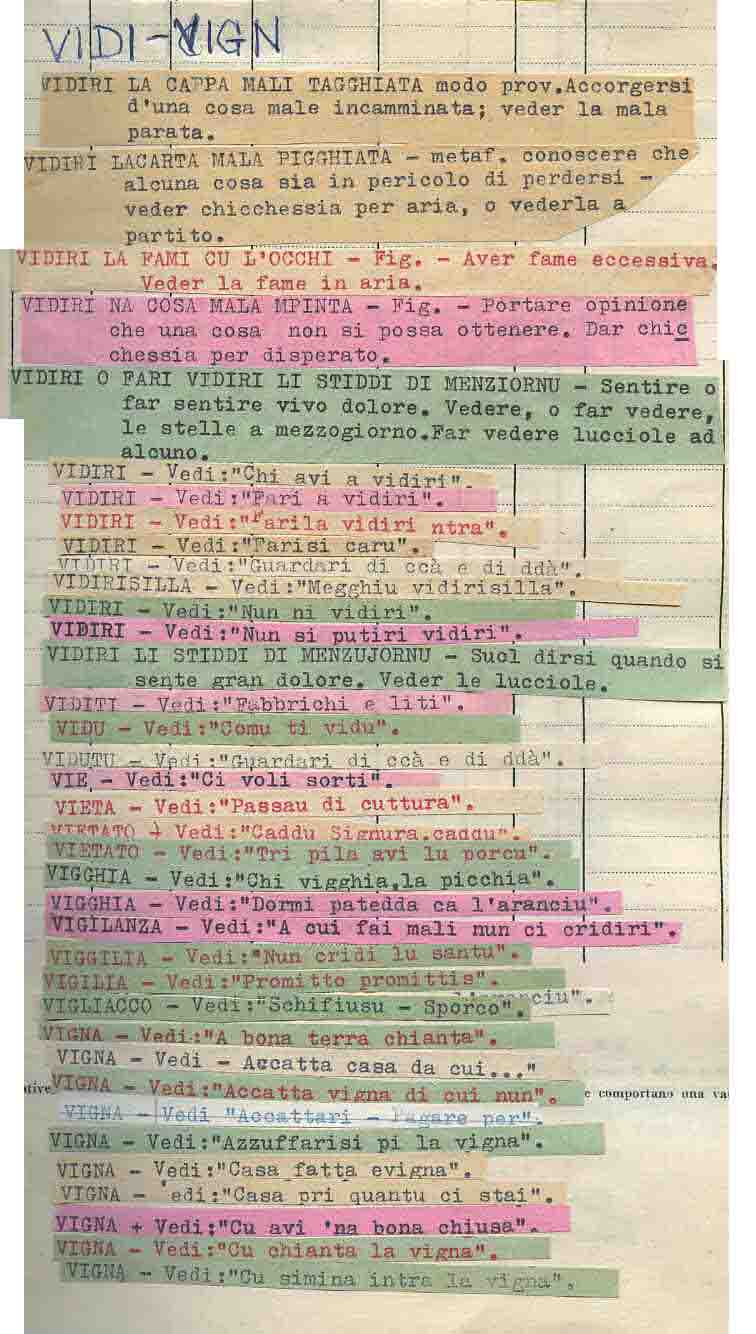 VIDI-VIGN
VIDIRI LA CAPPA MALI TAGGHIATA modo prov.Accorgersi
d'una cosa male incamminata; veder la mala
parata.
VIDIRI LACARTA MALA PIGGHIATA - metaf. conoscere che
alcuna cosa sia in pericolo di perdersi -
veder chicchessia per aria, o vederla a
partito.
VIDIRI LA FAMI CU L'OCCHI - Fig. - Aver fame eccessiva.
Veder la fame in aria.
VIDIRI NA COSA MALA MPINTA - Fig. - Portare opinione
che una cosa non si possa ottenere. Dar chic
chessia per disperato.
VIDIRI O FARI VIDIRI LI STIDDI DI MENZIORNU - Sentire o
far sentire vivo dolore. Vedere, o far vedere,
le stelle a mezzogiorno.Far vedere lucciole ad
alcuno.
VIDIRI - Vedi:"Chi avi a vidiri".
VIDIRI - Vedi:"Fari a vidiri".
VIDIRI - Vedi:"Farila vidiri ntra".
VIDIRI - Vedi:"Farisi caru".
VIDIRI - Vedi:"Guardari di ccà e di ddà".
VIDIRISILLA - Vedi:"Megghiu vidirisilla".
VIDIRI - Vedi:"Nun ni vidiri".
VIDIRI - Vedi:"Nun si putiri vidiri".
VIDIRI LI STIDDI DI MENZUJORNU - Suol dirsi quando si
sente gran dolore. Veder le lucciole.
VIDITI - Vedi:"Fabbrichi e liti".
VIDU - Vedi:"Comu ti vidu".
VIDUTU - Vedi:"Guardari di ccà e di ddà".
VIE - Vedi:"Ci voli sorti".
VIETA - Vedi:"Passau di cuttura".
VIETATO + Vedi:"Caddu Signura.caddu".
VIETATO - Vedi:"Tri pila avi lu porcu".
VIGGHIA - Vedi:"Chi vigghia,la picchia".
VIGGHIA - Vedi:"Dormi patedda ca l'aranciu".
VIGILANZA - Vedi:"A cui fai mali nun ci cridiri".
VIGGILIA - Vedi:"Nun cridi lu santu".
VIGILIA - Vedi:"Promitto promittis".
VIGLIACCO - Vedi:"Schifiusu - Sporco". ciu".
VIGNA - Vedi:"A bona terra chianta".
VIGNA - Vedi - Accatta casa da cui..."
tive VIGNA - Vedi:"Accatta vigna di cui nun". e comportano una va
VIGNA - Vedi "Accattari - Pagare per".
VIGNA - Vedi:"Azzuffarisi pi la vigna".
VIGNA - Vedi:"Casa fatta evigna".
VIGNA - edi:"Casa pri quantu ci stai".
VIGNA + Vedi:"Cu avi 'na bona chiusa".
VIGNA - Vedi:"Cu chianta la vigna".
VIGNA - Vedi:"Cu simina intra la vigna".